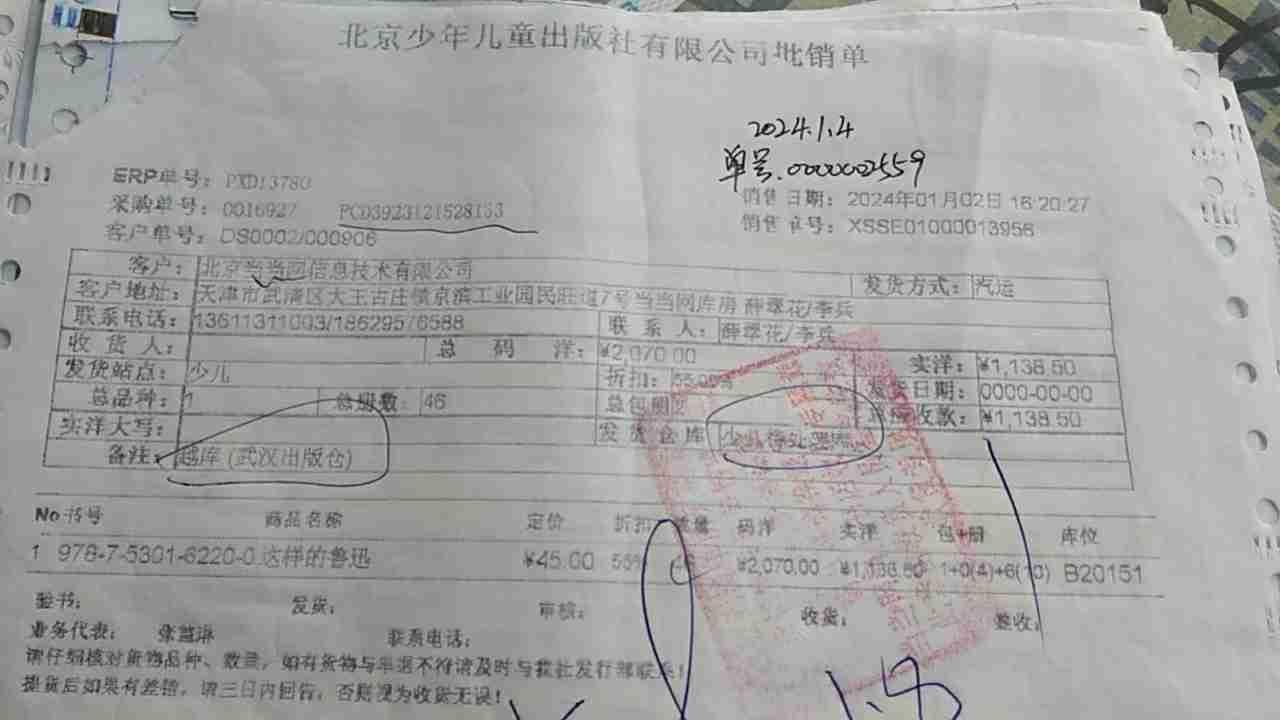 北京少年儿童出版社有限公司批销单
2024.1.4
单号.0000002559
ERP单号：PXD13780
采购单号：0016927 PCD3923121528133
客户单号：DS0002/000906
销售日期：2024年01月02日 16:20:27
销售单号：XSSE01000013956
客户：北京当当网信息技术有限公司 发货方式：汽运
客户地址：天津市武清区大王古庄镇京滨工业园民旺道7号当当网库房 薛翠花/李兵
联系电话：13611311003/18629576588 联系人：薛翠花/李兵
收货人： 总码洋：¥2,070.00 实洋：¥1,138.50
发货站点：少儿 折扣：55.00% 发货日期：0000-00-00
总品种：1 总册数：46 总包册 ¥1,138.50
实洋大写： 发货仓库
备注：越库 (武汉出版仓)
No 书号 商品名称 定价 折扣 数量 码洋 实洋 包+册 库位
1 978-7-5301-6220-0 这样的鲁迅 ¥45.00 55% ¥2,070.00 ¥1,138.50 1+0(4)+6(10) B20151
验书： 发货： 审核： 收货： 签收：
业务代表： 联系电话：
请仔细核对货物品种、数量，如有货物与单据不符请及时与我社发行部联系！
提货后如果有差错，请三日内回告，否则视为收货无误！